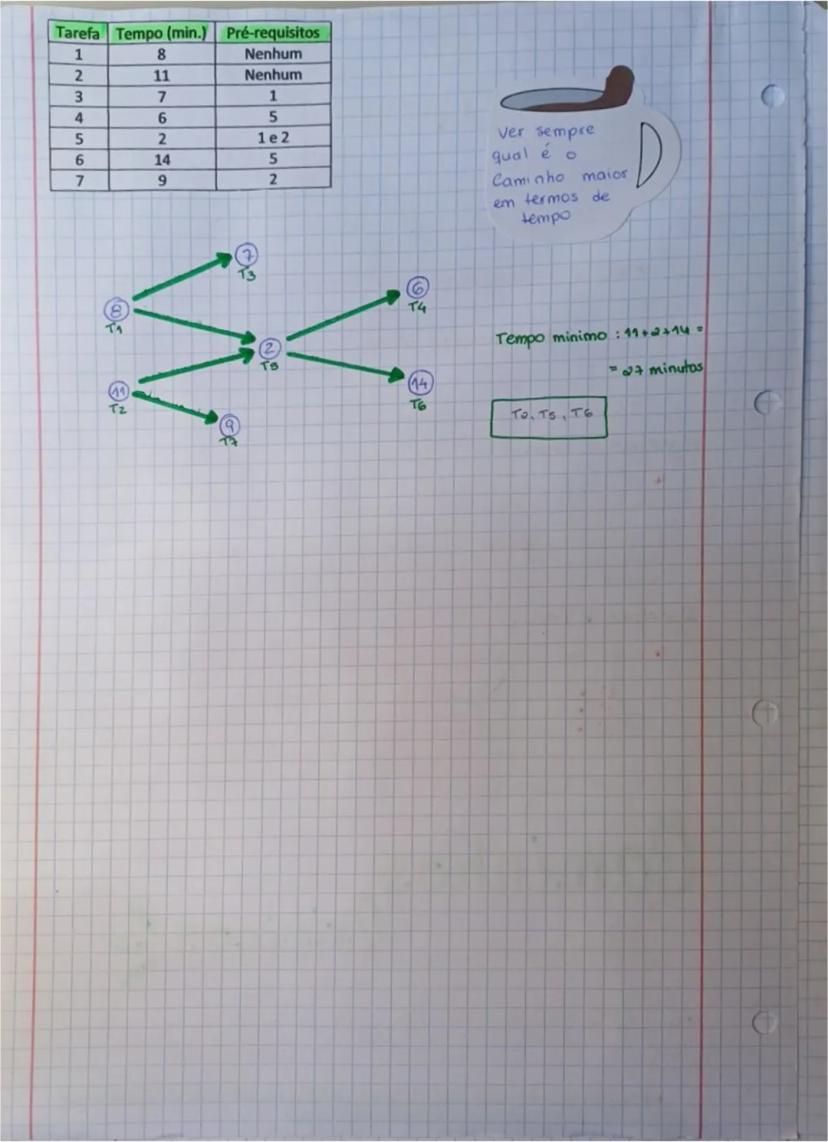 Tarefa Tempo (min.) Pré-requisitos
1 8 Nenhum
2 11 Nenhum
3 7 1
4 6 5
5 2 1 e 2
6 14 5
7 9 2
Ver sempre
qual é o
Caminho maior
em termos de
tempo
7
T3
8
T1
6
T4
2
T5
11
T2
14
T6
9
T7
Tempo minimo : 11+2+14 =
= 27 minutos
T2, T5, T6